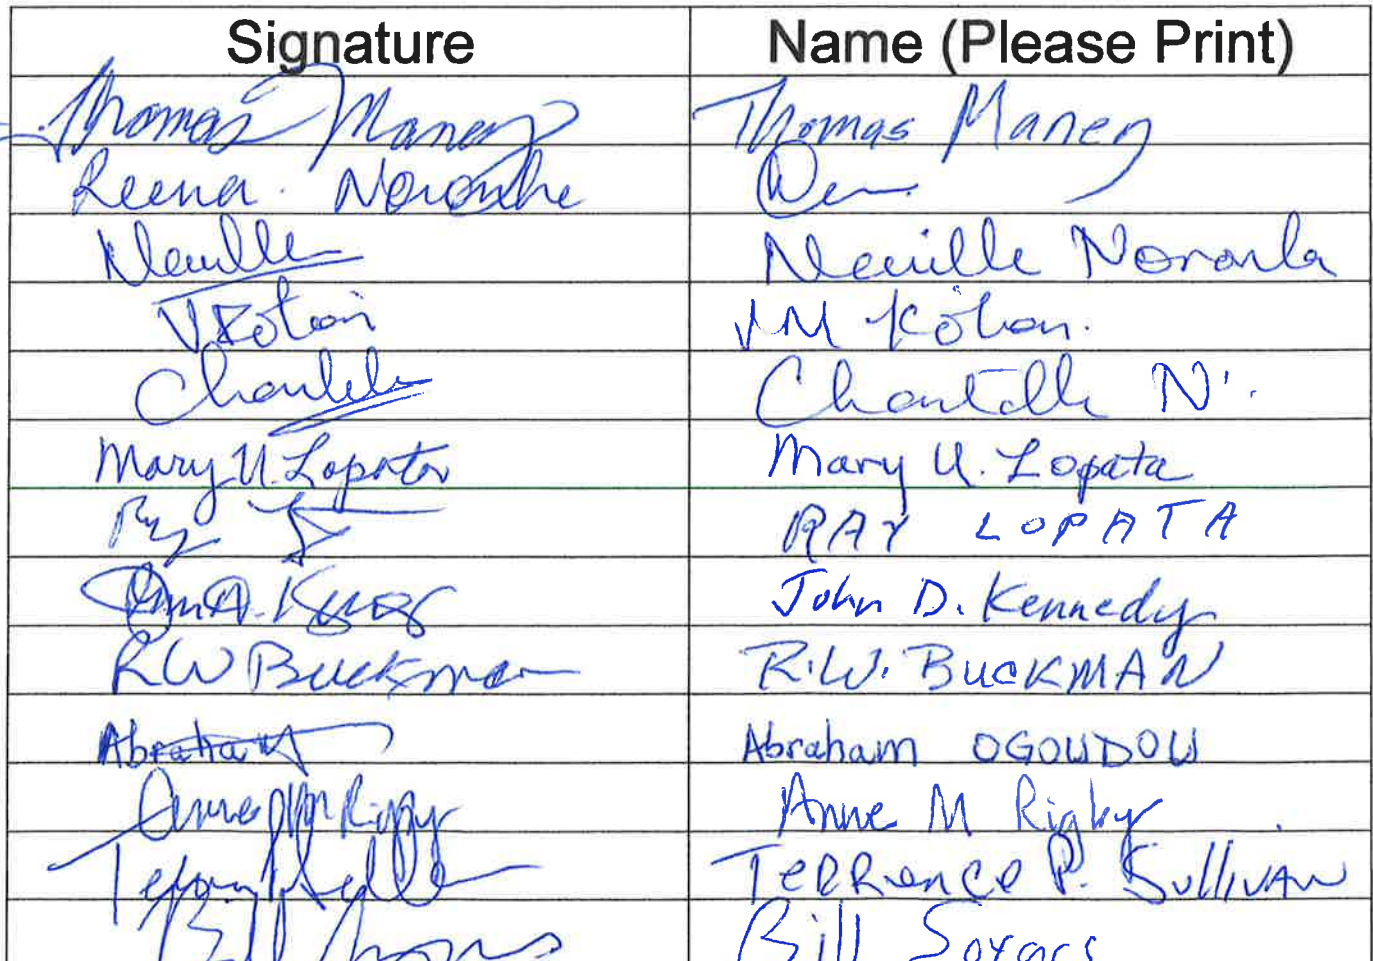 Signature Name (Please Print)
Thomas Maney Thomas Maney
Reena. Noronha
Neville Neville Noronha
J Kotian JM Kotian.
Chantelle Chantelle N'.
Mary U. Lopata Mary U. Lopata
Ray RAY LOPATA
John D. Kennedy
RW Buckman R.W. BUCKMAN
Abraham Abraham OGOUDOU
Anne M Rigby Anne M Rigby
TERRence P. Sullivan
Bill Bill